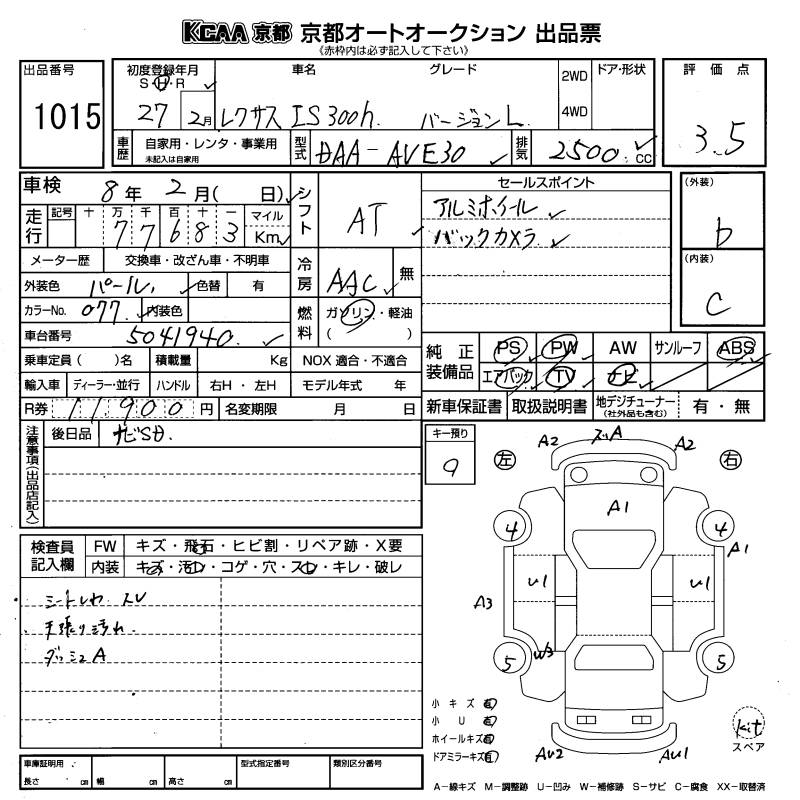 KCAA 京都 京都オートオークション 出品票
《赤枠内は必ず記入して下さい》
出品番号
1015
初度登録年月
S・H・R
27 2月
車名
レクサス IS300h
グレード
バージョンL
2WD
4WD
ドア・形状
評価点
3.5
車歴
自家用・レンタ・事業用
未記入は自家用
型式
DAA-AVE30
排気
2500 cc
車検
8年 2月( 日)
シフト
AT
セールスポイント
アルミホイール
バックカメラ
(外装)
b
(内装)
C
走行
記号 十 万 千 百 十 一 マイル
77683 Km
メーター歴
交換車・改ざん車・不明車
冷房
AAC
無
外装色
パール
色替
有
カラーNo.
077
内装色
燃料
ガソリン・軽油
( )
車台番号
5041940
乗車定員( )名
積載量
Kg
NOX 適合・不適合
純正装備品
PS PW AW サンルーフ ABS
エアバック TV ナビ
輸入車
ディーラー・並行
ハンドル
右H・左H
モデル年式 年
R券
11900 円
名変期限
月 日
新車保証書
取扱説明書
地デジチューナー
(社外品も含む)
有・無
注意事項(出品店記入)
後日品
ナビSD.
キー預り
9
左
右
A2
A2
A1
4
4
A1
U1
U1
A3
W3
5
5
AU2
AU1
検査員記入欄
FW
キズ・飛石・ヒビ割・リペア跡・X要
内装
キズ・汚れ・コゲ・穴・スレ・キレ・破レ
シートシワ スレ
天張り汚れ
ダッシュA
小キズ 有
小U 有
ホイールキズ 有
ドアミラーキズ 有
Kit
スペア
車庫証明用
長さ cm
幅 cm
高さ cm
型式指定番号
類別区分番号
A−線キズ M−調整跡 U−凹み W−補修跡 S−サビ C−腐食 XX−取替済